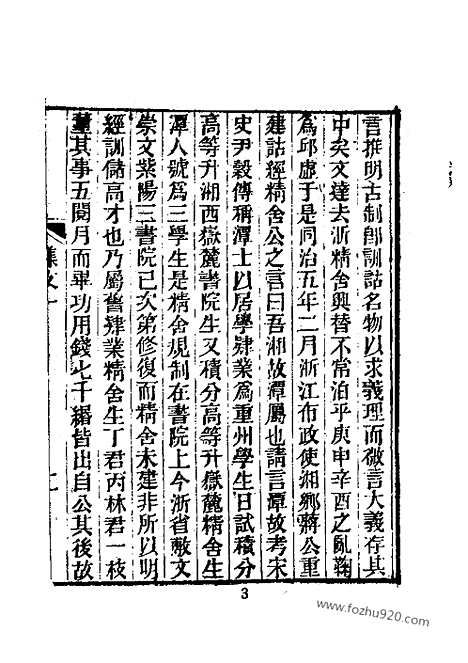 言推明古制即訓詁名物以求義理而微言大義存其
中矣文達去浙精舍興替不常洎乎庚申辛酉之亂鞠
為邱虛于是同治五年二月浙江布政使湘鄉蔣公重
建詁經精舍公之言曰吾湘故潭屬也請言潭故考宋
史尹穀傳稱潭士以居學肄業為重州學生日試積分
高等升湘西嶽麓書院生又積分高等升嶽麓精舍生
潭人號為三學生是精舍規制在書院上今浙省敷文
崇文紫陽三書院已次第修復而精舍未建非所以明
經訓儲高才也乃屬舊肄業精舍生丁君丙林君一枝
董其事五閱月而畢功用錢七千緡皆出自公其後故
3
www.fozhu920.com